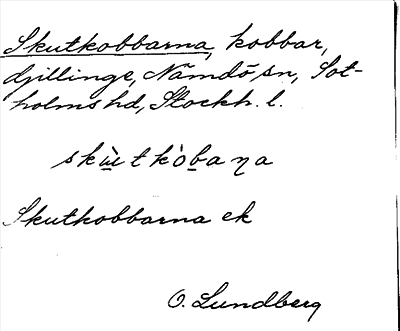 Skutkobbarna, kobbar,
djillinge, Nämdö sn, Sot-
holms hd, Stockh. l.
skùtkòbaŋa
Skutkobbarna ek
O. Lundberg